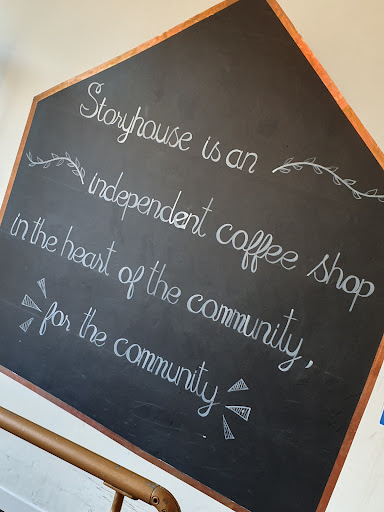 Storyhouse is an
independent coffee shop
in the heart of the community,
for the community